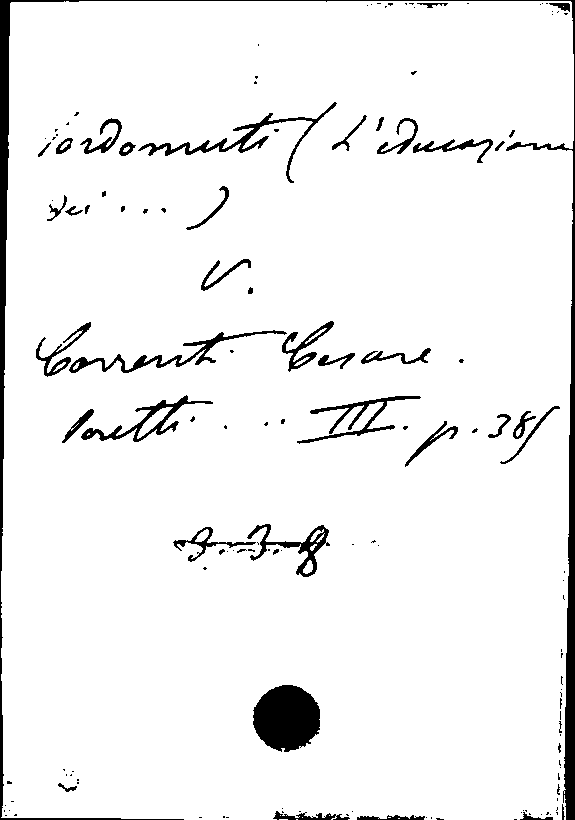 Sordomuti (L'educazione
dei ... )
V.
Correnti Cesare.
Scritti ... III. p. 385
3.3.8